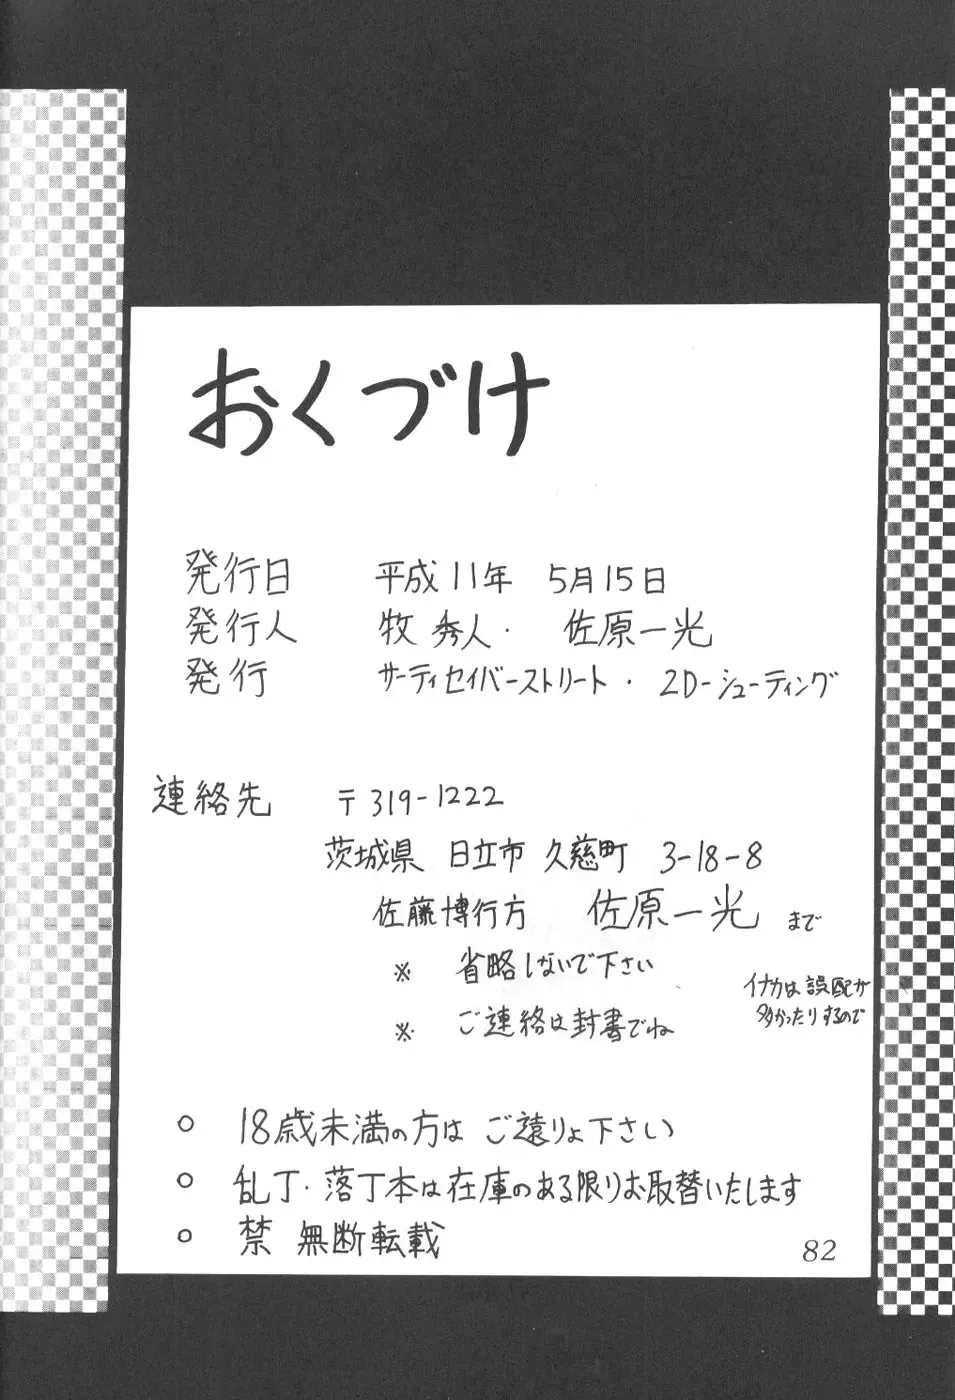 おくづけ
発行日 平成11年 5月15日
発行人 牧 秀人・ 佐原一光
発行 サーティセイバーストリート・2D-シューティング
連絡先 〒319-1222
茨城県 日立市 久慈町 3-18-8
佐藤博行方 佐原一光 まで
※ 省略しないで下さい
イナカは誤配が
多かったりするので
※ ご連絡は封書でね
○ 18歳未満の方は ご遠りょ下さい
○ 乱丁・落丁本は在庫のある限りお取替いたします
○ 禁 無断転載
82